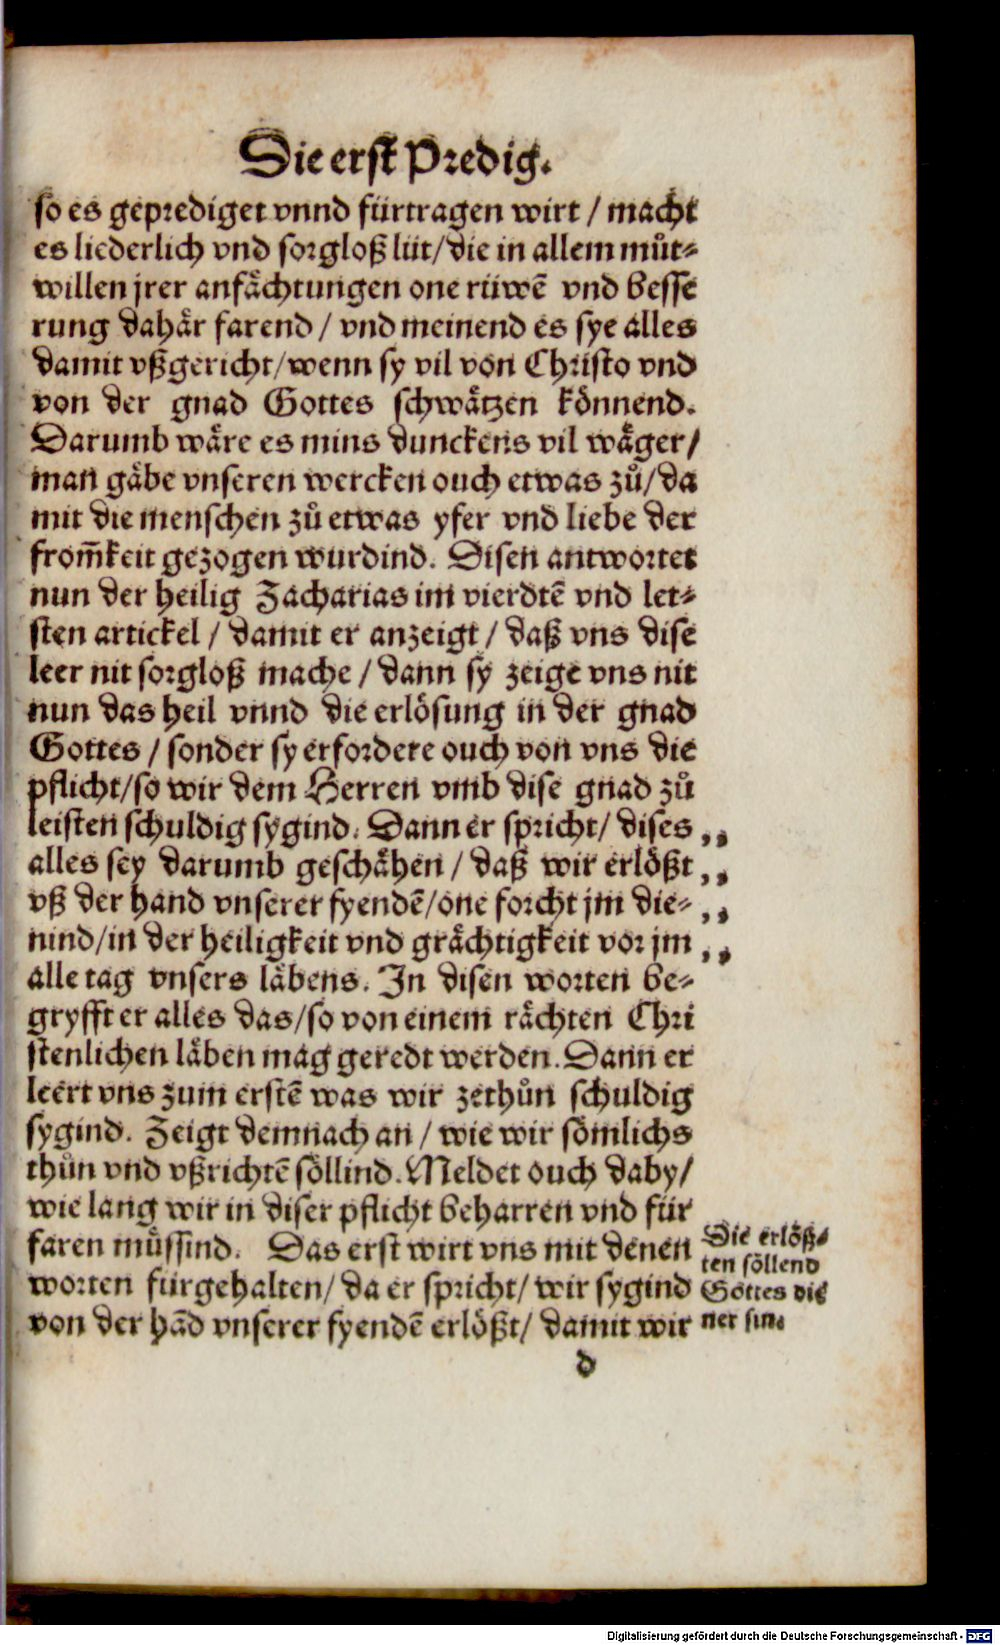 Die erst Predig.
so es geprediget vnnd fürtragen wirt / macht
es liederlich vnd sorgloß lüt/die in allem můt⸗
willen jrer anfächtungen one rüwē vnd besse
rung dahär farend / vnd meinend es sye alles
damit vßgericht/wenn sy vil von Christo vnd
von der gnad Gottes schwätzen könnend.
Darumb wäre es mins dunckens vil wäger/
man gäbe vnseren wercken ouch etwas zů/da
mit die menschen zů etwas yfer vnd liebe der
from̄keit gezogen wurdind. Disen antwortet
nun der heilig Zacharias im vierdtē vnd let⸗
sten artickel / damit er anzeigt / daß vns dise
leer nit sorgloß mache / dann sy zeige vns nit
nun das heil vnnd die erlösung in der gnad
Gottes / sonder sy erfordere ouch von vns die
pflicht/so wir dem Herren vmb dise gnad zů
leisten schuldig sygind. Dann er spricht/ dises ,,
alles sey darumb geschähen / daß wir erlößt ,,
vß der hand vnserer fyendē/one forcht jm die⸗ ,,
nind/in der heiligkeit vnd grächtigkeit vor jm ,,
alle tag vnsers läbens. In disen worten be⸗
gryfft er alles das/so von einem rächten Chri
stenlichen läben mag geredt werden. Dann er
leert vns zum erstē was wir zethůn schuldig
sygind. Zeigt demnach an / wie wir sömlichs
thůn vnd vßrichtē söllind. Meldet ouch daby/
wie lang wir in diser pflicht beharren vnd für
faren müssind. Das erst wirt vns mit denen
worten fürgehalten/ da er spricht/ wir sygind
von der hād vnserer fyendē erlößt/ damit wir
Die erlöß⸗
ten söllend
Gottes die
ner sin.
d
Digitalisierung gefördert durch die Deutsche Forschungsgemeinschaft - DFG